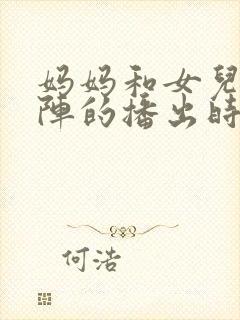 妈妈和女兒
陣的播出時
何浩